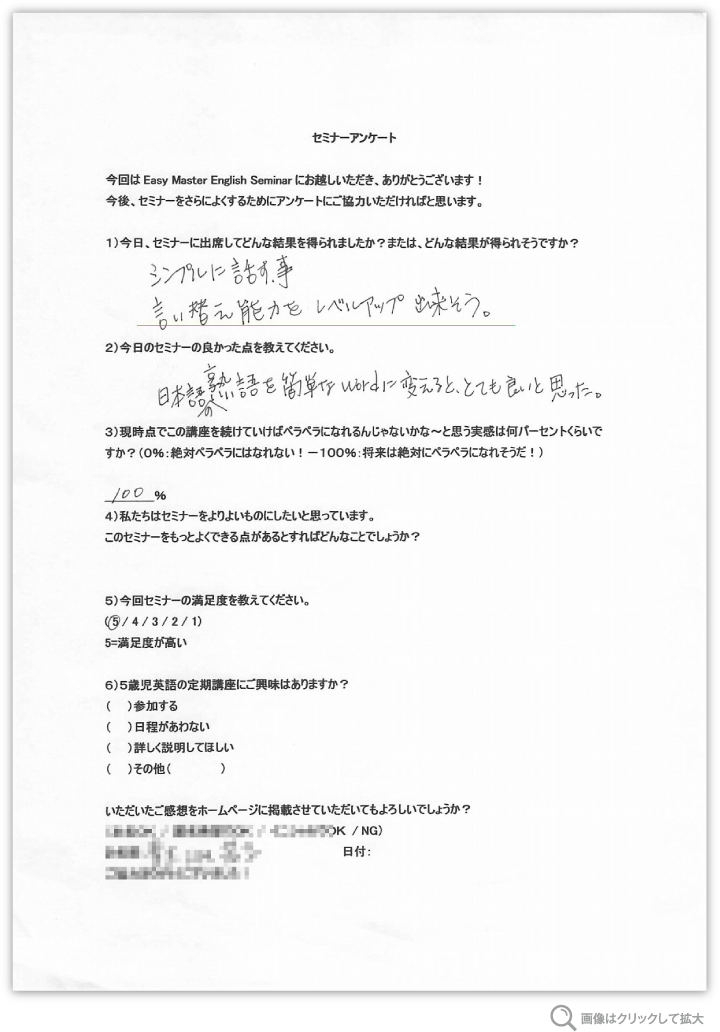 セミナーアンケート
今回は Easy Master English Seminar にお越しいただき、ありがとうございます！
今後、セミナーをさらによくするためにアンケートにご協力いただければと思います。
１）今日、セミナーに出席してどんな結果を得られましたか？または、どんな結果が得られそうですか？
シンプルに話す、事
言い替え能力をレベルアップ出来そう。
２）今日のセミナーの良かった点を教えてください。
日本語の熟語を簡単なwordに変えると、とても良いと思った。
３）現時点でこの講座を続けていけばペラペラになれるんじゃないかな～と思う実感は何パーセントくらいで
すか？（０％：絶対ペラペラにはなれない！－１００％：将来は絶対にペラペラになれそうだ！）
100%
４）私たちはセミナーをよりよいものにしたいと思っています。
このセミナーをもっとよくできる点があるとすればどんなことでしょうか？
５）今回セミナーの満足度を教えてください。
(5 / 4 / 3 / 2 / 1)
5=満足度が高い
６）５歳児英語の定期講座にご興味はありますか？
（　）参加する
（　）日程があわない
（　）詳しく説明してほしい
（　）その他（　　　）
いただいたご感想をホームページに掲載させていただいてもよろしいでしょうか？
OK / NG）
日付：
画像はクリックして拡大